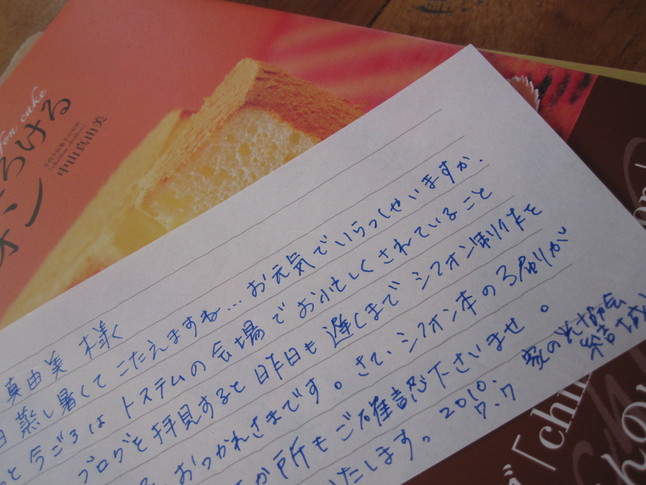 fon cake
ろける
オン
中山真由美
真由美 様
日 蒸し暑くてこたえますね…お元気でいらっしゃいますか.
と今ごろは トステムの会場でお忙しくされていること
ブログを拝見すると昨日も遅くまでシフォン制作を
おつかれさまです。さて、シフォン本の3刷りが
か所もご確認下さいませ。
たします。2010.
7.7
家の光協会
結城
「chiffon」